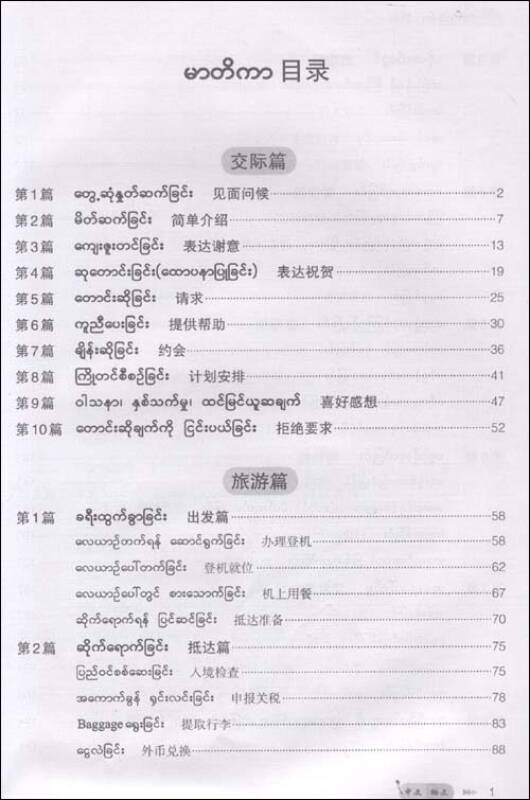 မာတိကာ 目录
交际篇
第1篇 တွေ့ဆုံနှုတ်ဆက်ခြင်း 见面问候 2
第2篇 မိတ်ဆက်ခြင်း 简单介绍 7
第3篇 ကျေးဇူးတင်ခြင်း 表达谢意 13
第4篇 ဆုတောင်းခြင်း(ထောပနာပြုခြင်း) 表达祝贺 19
第5篇 တောင်းဆိုခြင်း 请求 25
第6篇 ကူညီပေးခြင်း 提供帮助 30
第7篇 ချိန်းဆိုခြင်း 约会 36
第8篇 ကြိုတင်စီစဉ်ခြင်း 计划安排 41
第9篇 ဝါသနာ၊ နှစ်သက်မှု၊ ထင်မြင်ယူဆချက် 喜好感想 47
第10篇 တောင်းဆိုချက်ကို ငြင်းပယ်ခြင်း 拒绝要求 52
旅游篇
第1篇 ခရီးထွက်ခွာခြင်း 出发篇 58
လေယာဉ်တက်ရန် ဆောင်ရွက်ခြင်း 办理登机 58
လေယာဉ်ပေါ်တက်ခြင်း 登机就位 62
လေယာဉ်ပေါ်တွင် စားသောက်ခြင်း 机上用餐 67
ဆိုက်ရောက်ရန် ပြင်ဆင်ခြင်း 抵达准备 70
第2篇 ဆိုက်ရောက်ခြင်း 抵达篇 75
ပြည်ဝင်စစ်ဆေးခြင်း 入境检查 75
အကောက်ခွန် ရှင်းလင်းခြင်း 申报关税 78
Baggageရွေးခြင်း 提取行李 83
ငွေလဲခြင်း 外币兑换 88
1